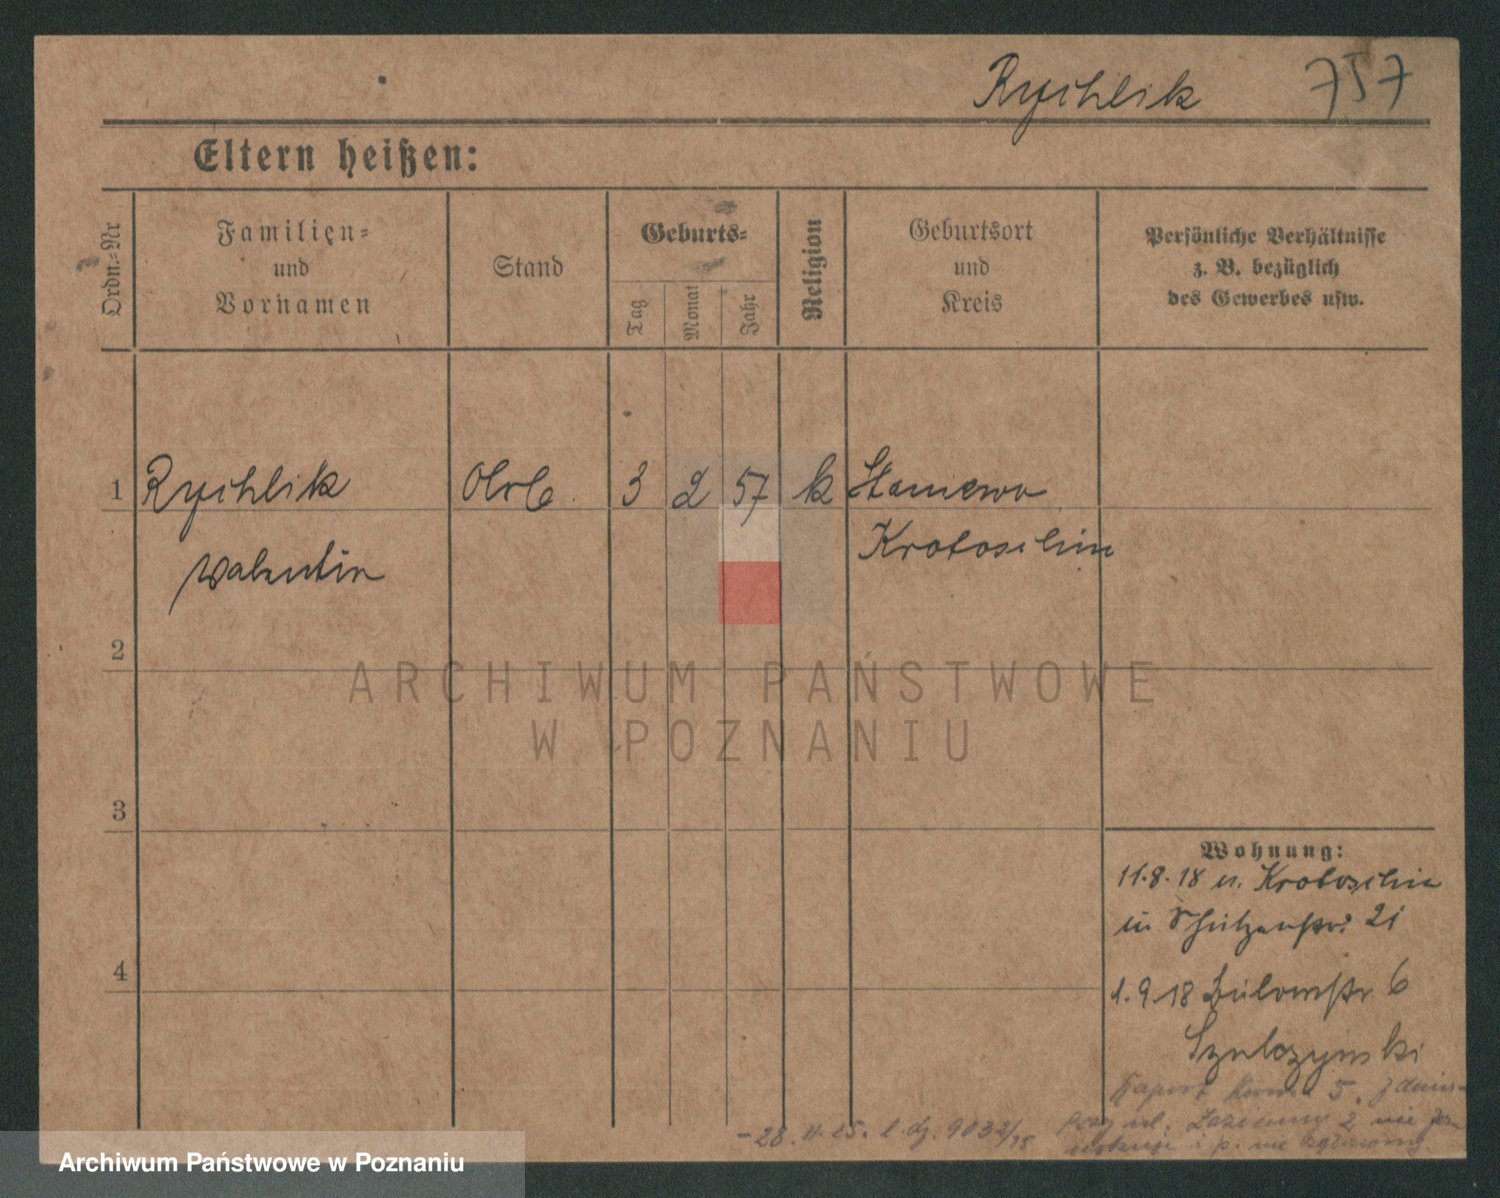 Rychlik 757
Eltern heißen:
Ordn.-Nr
Familien-
und
Vornamen
Stand
Geburts-
Tag
Monat
Jahr
Religion
Geburtsort
und
Kreis
Persönliche Verhältnisse
z. B. bezüglich
des Gewerbes usw.
1 Rychlik Arb 3 2 57 k Staniewo
Valentin Krotoschin
2
3
4
Wohnung:
11.8.18 v. Krotoschin
in Schützenstr. 21
1.9.18 Bülowstr 6
Szulczynski
Raport Kom. 5.
przy ul. 2 nie
i p. nie
-28. 11. 25. l. dz. 9032/25
ARCHIWUM PAŃSTWOWE
W POZNANIU
Archiwum Państwowe w Poznaniu